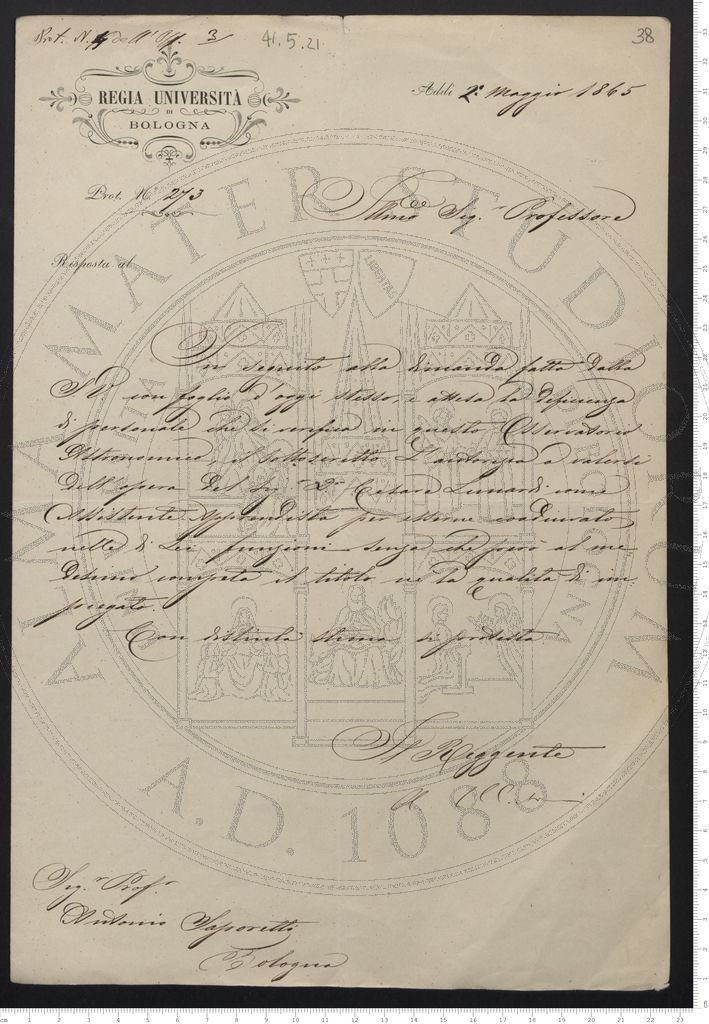 Prot. N. 4 dell'Uff. 3
41.5.21
38
REGIA UNIVERSITÀ
DI
BOLOGNA
Addì 2. Maggio 1865
Prot. N. 273
Illmo Sig.r Professore
Risposta al
In seguito alla dimanda fatta dalla
S. V. con foglio d'oggi stesso, e attesa la deficienza
di personale che si verifica in questo Osservatorio
Astronomico, il sottoscritto L'autorizza a valersi
dell'opera del Sig.r D.r Cesare Lunardi come
Assistente Apprendista per essere coadiuvato
nelle di Lei funzioni senza che però al me-
desimo competa il titolo ne la qualità di im-
piegato.
Con distinta stima si protesta.
Il Reggente
Sig.r Prof.r
Antonio Saporetti
Bologna
ALMA MATER STUDIORUM
A.D. 1088
LIBERTAS